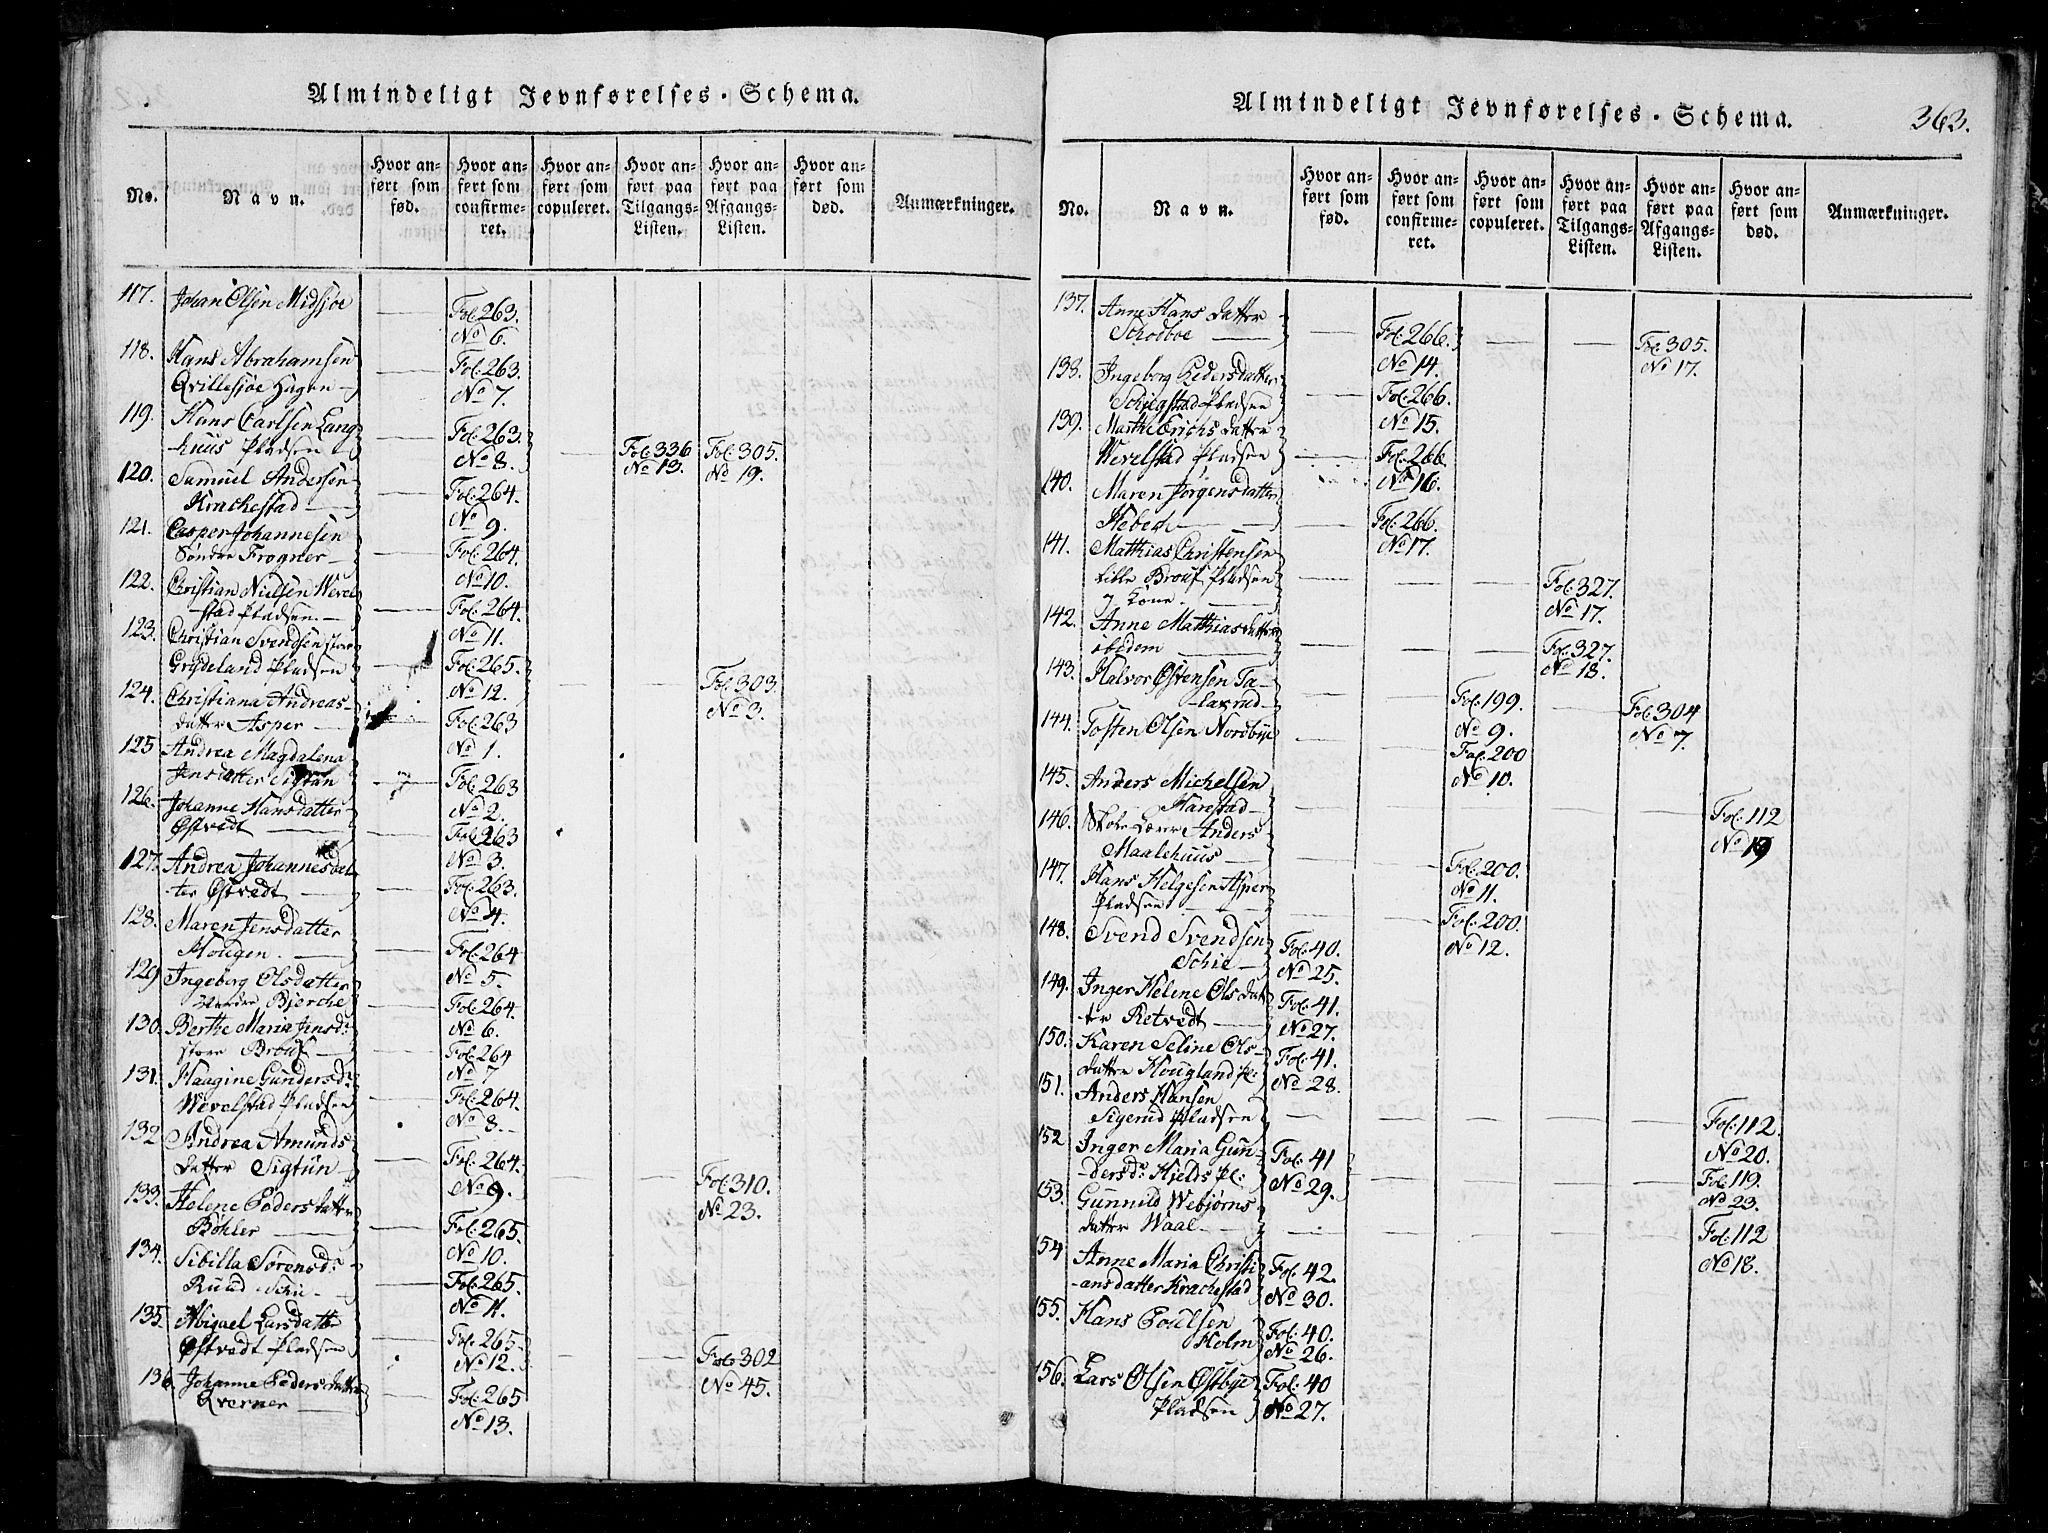 Almindeligt Jevnførelses-Schema.
No.
Navn.
Hvor anført som fød.
Hvor anført som confirmeret.
Hvor anført som copuleret.
Hvor anført paa Tilgangs-Listen.
Hvor anført paa Afgangs-Listen.
Hvor anført som død.
Anmærkninger.
117. Johan Olsen Midsjøe Fol: 263. No 6.
118. Hans Abrahamsen
Qvillesjøe Hagen Fol: 263. No 7.
119. Hans Carlsen Lang
huus Pladsen Fol: 263. No 8. Fol: 336 No 13. Fol: 305. No 19.
120. Samuel Andersen
Krachestad Fol: 264. No 9.
121. Casper Johannesen
Søndre Frogner Fol: 264. No 10.
122. Christian Nielsen Wevel
stad Pladsen. Fol: 264. No 11.
123. Christian Svendsen store
Grydeland Pladsen Fol: 265. No 12. Fol: 303. No 3.
124. Christiana Andreas-
datter Asper Fol: 263 No 1.
125 Andrea Magdalena
Jensdatter Sigtun Fol: 263 No 2.
126. Johanne Hansdatter
Østvedt Fol: 263 No 3.
127. Andrea Johannesdat
ter Østvedt Fol: 263. No 4.
128. Maren Jensdatter
Hougen. Fol: 264 No 5.
129 Ingeborg Olsdatter
Bjerche Fol: 264. No 6.
130. Berthe Maria Jensd:
store Brout Fol: 264 No 7
131. Haagine Gundersd:
Wevelstad Pladsen Fol: 264. No 8.
132 Andrea Amunds
datter Sigtun Fol: 264. No 9. Fol: 310. No 23.
133. Helene Peders datter
Bøhler Fol: 265. No 10.
134. Sibilla Sørensd:
Ruud Schie Fol: 265. No 11.
135. Abigael Larsdatter
Østvedt Pladsen Fol: 265 No 12. Fol: 302 No 45.
136 Johanne Peders datter
Qverner Fol: 265 No 13.
Almindeligt Jevnførelses-Schema.
363.
No.
Navn.
Hvor anført som fød.
Hvor anført som confirmeret.
Hvor anført som copuleret.
Hvor anført paa Tilgangs-Listen.
Hvor anført paa Afgangs-Listen.
Hvor anført som død.
Anmærkninger.
137. Anne Hans datter
Schodboe Fol: 266. No 14. Fol: 305. No 17.
138. Ingeborg Pedersdatter
Pladsen Fol: 266. No 15.
139. Marthe Erichs datter
Wevelstad Pladsen Fol: 266 No 16.
140. Maren Jørgensdatter
Hebech Fol: 266. No 17.
141. Matthias Christensen
Lille Brout Pladsen
og Kone. Fol: 327. No 17.
142. Anne Mathiasdatter
ibidem Fol: 327. No 18.
143. Halvor Østensen Ta-
laxrud Fol: 199. No 9. Fol: 304 No 7.
144. Tosten Olsen Nordbye Fol: 200 No 10.
145. Anders Michelsen
Harestad Fol: 112 No 19
146. Skole Lærer Anders
Maalehuus Fol: 200. No 11.
147. Hans Helgesen Asper
Pladsen Fol: 200. No 12.
148. Svend Svendsen
Schie Fol: 40. No 25.
149. Inger Helene Olsdat
ter Retvedt Fol: 41. No 27.
150. Karen Seline Ols-
datter Hougland pl: Fol: 41. No 28.
151. Anders Hansen
Sigerud Pladsen Fol: 112. No 20.
152 Inger Maria Gun-
dersd: Hjelds pl: Fol: 41 No 29. Fol: 119. No 23.
153. Gunnild Webjørns
datter Waal Fol: 112 No 18.
154 Anne Maria Christi
ansdatter Krachestad Fol: 42. No 30.
155. Hans Poulsen
Holm Fol: 40. No 26.
156. Lars Olsen Østbye
Pladsen Fol: 40 No 27.